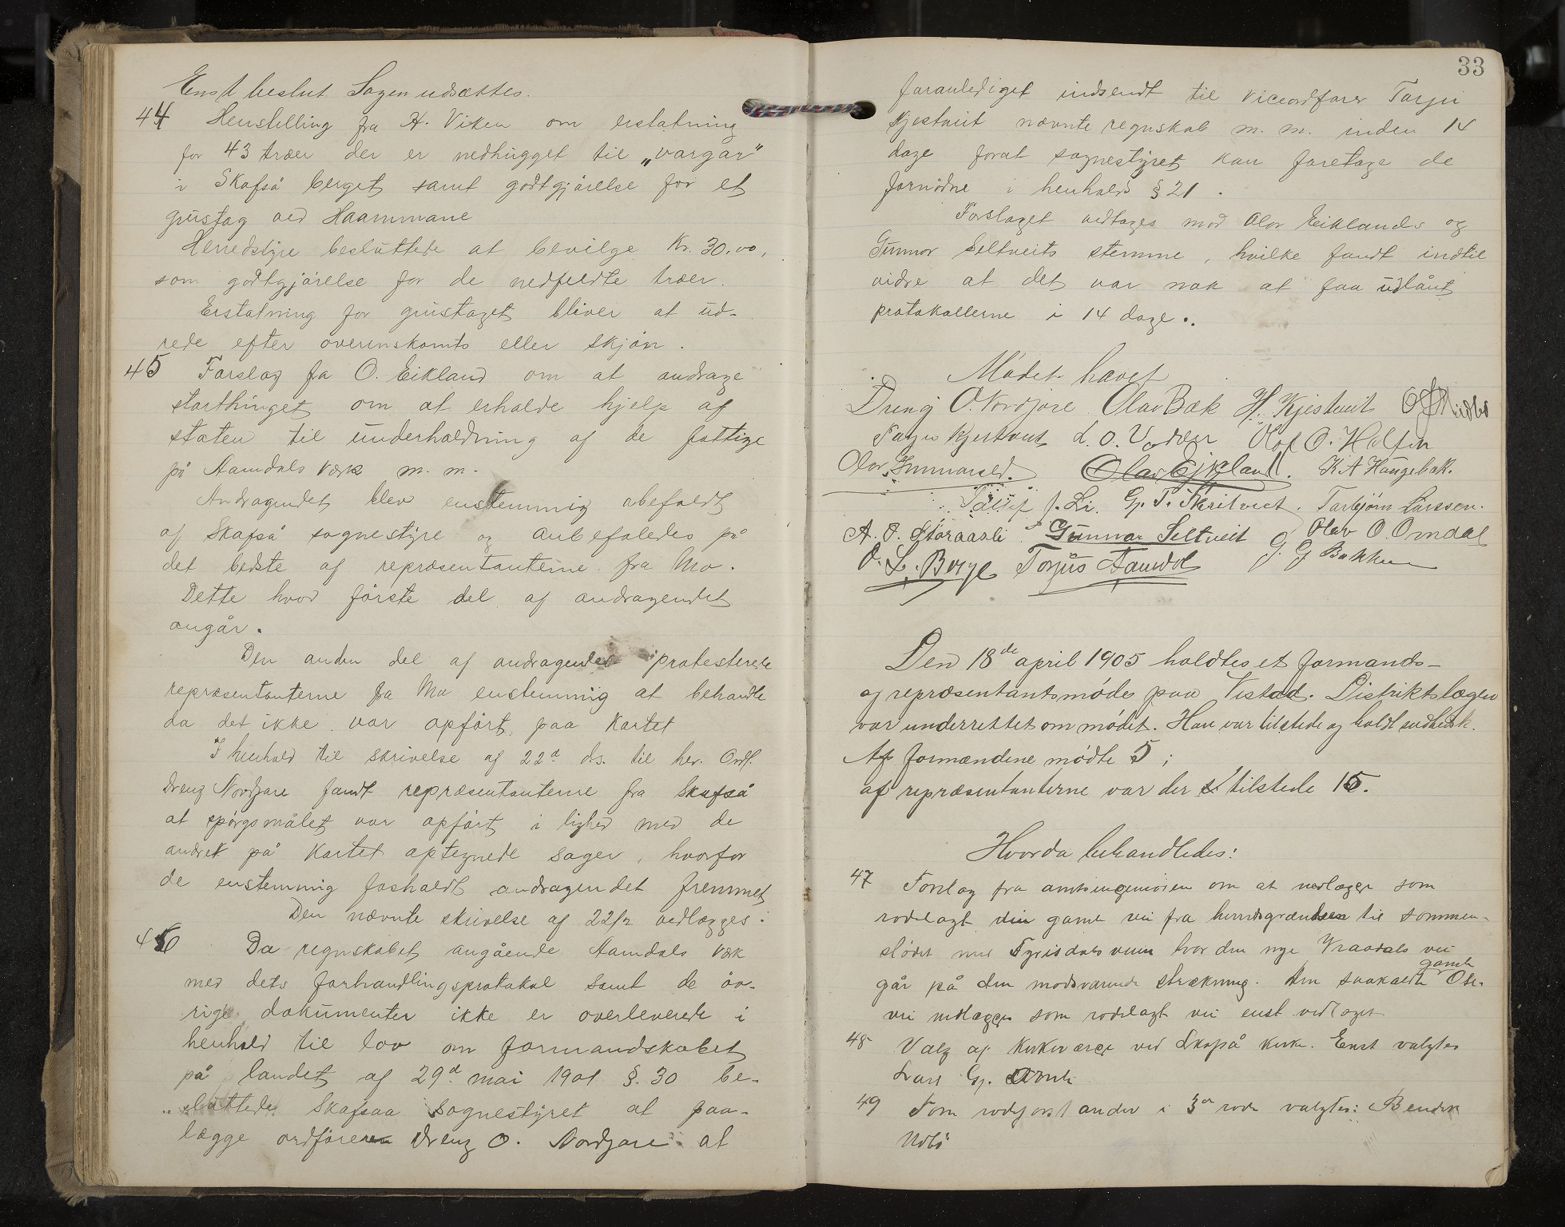 Enst beslut. Sagen udsættes.
44 Henstilling fra H. Viken om erstatning
for 43 træer der er nedhugget til „vargar"
i Skafså berget samt godtgjørelse for et
grustag ved Haammane
Herredstyre besluttede at bevilge Kr. 30.00,
som godtgjørelse for de nedfeldte træer.
Erstatning for grustaget bliver at ud-
rede efter overenskomts eller skjøn.
45 Forslag fra O. Eikland om at andrage
storthinget om at erholde hjelp af
staten til underholdning af de fattige
på Aamdals værk m. m.
Andragendet blev enstemmig abefaldt
af Skafså sognestyre og anbefaledes på
det bedste af repræsentanterne fra Mo.
Dette hvad første del af andragendet
angår.
Den anden del af andragendet protesterede
repræsentanterne fra Mo enstemmig at behandle
da det ikke var opført paa kartet
I henhold til skrivelse af 22d ds. til hr. Ordf.
Dreng Nordjore fandt repræsentanterne fra Skafså
at spørgsmålet var opført i lighed med de
andre på kartet optegnede sager, hvorfor
de enstemmig forholdt andragendet fremmet
Den nævnte skrivelse af 22/2 vedlægges.
46 Da regnskabet angående Aamdals værk
med dets forhandlingsprotokol samt de øv-
rige dokumenter ikke er overleverede i
henhold til lov om formandskabet
på landet af 29d mai 1901 §. 30 be-
sluttede Skafsaa sognestyret at paa-
lægge ordføreren Dreng O. Nordjore at
33
foranlediget indsendt til viceordfører Tarjei
Kjestveit nævnte regnskab m. m. inden 14
dage forat sognestyret kan foretage de
fornødne i henhold § 21.
Forslaget vedtages mod Olav Eiklands og
Gunnar Seltveits stemme, hvilke fandt indtil
vidre at det var nok at faa udlånt
protokollerne i 14 dage.
Mødet hævet
Dreng O. Nordjore Olav Bæk H. Kjestveit
Tarjei Kjestveit L. O. Olof O. Halfin
Olav Gunnarsld. Olav Ejkland. K A Haugebak.
J. Li. G. T. Skreitveit. Tarbjørn Larssen.
A. O. Storaasli Gunnar Seltveit Olav O. Omdal
O. L. Borge Torjus Aamdal G. G Bakken
Den 18de april 1905 holdtes et formands-
og repræsentantsmøde paa Vistad. Distriktslægen
var underrettet om mødet. Han var tilstede og holdt
Af formændene mødte 5;
af repræsentanterne var der tilstede 15.
Hvorda behandledes:
47 Forslag fra amtsingeniøren om at nedlægge som
rodelagt den gamle vei fra herredsgrændsen til sammen-
stødet med Fyrisdalsveien hvor den nye Vraadals vei
går på den modsvarende strækning. Den saakaldte gamle Ose-
vei nedlægges som rodelagt vei enst vedtaget
48 Valg af kirkeværge ved Skafså kirke. Enst valgtes
Lars Gj.
49 Som rodeforstander i 3d rode valgtes: Bendik